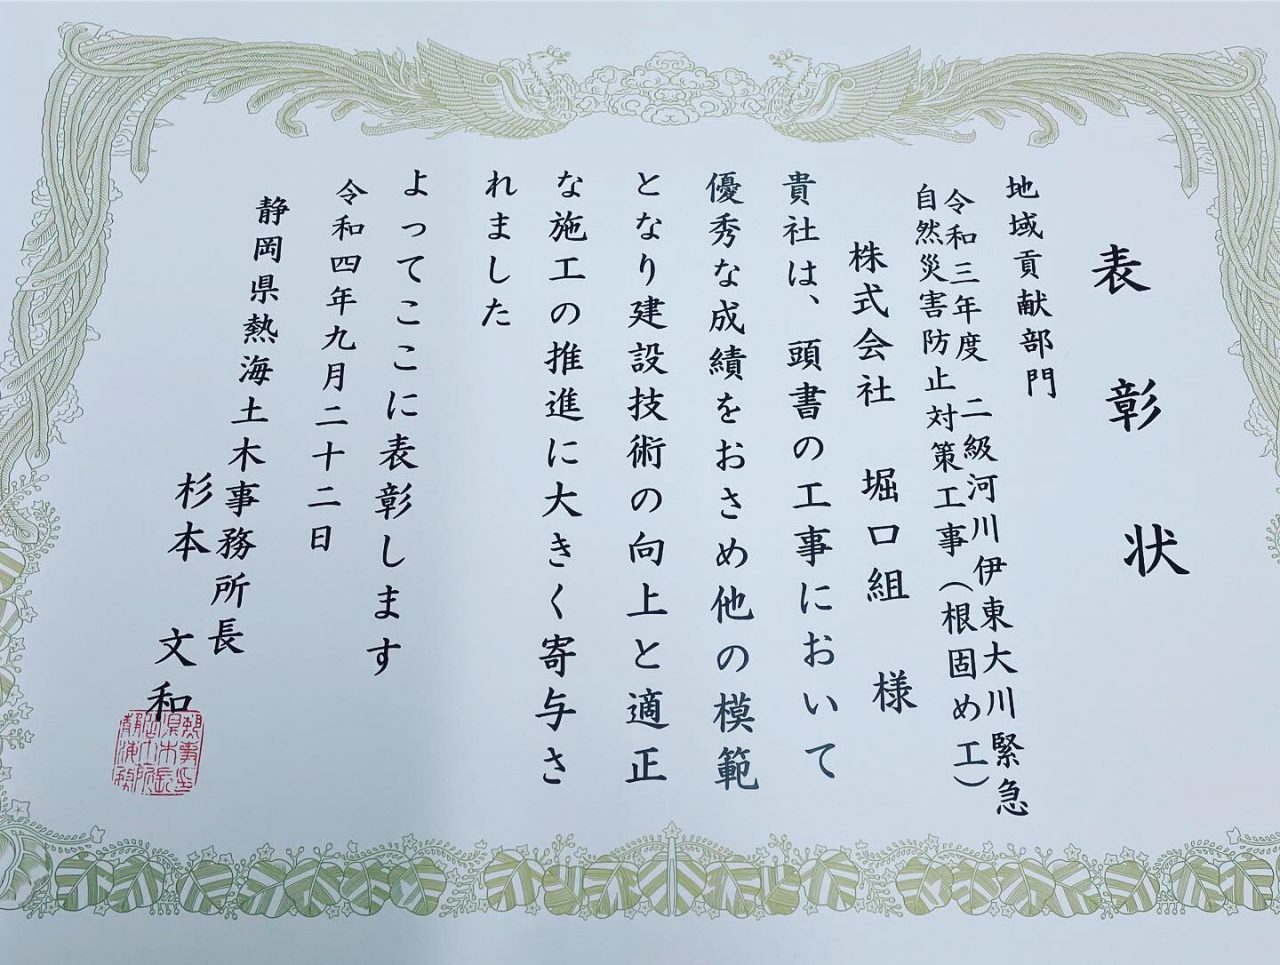 表彰状
地域貢献部門
令和三年度 二級河川伊東大川緊急
自然災害防止対策工事（根固め工）
株式会社 堀口組 様
貴社は、頭書の工事において
優秀な成績をおさめ他の模範
となり建設技術の向上と適正
な施工の推進に大きく寄与さ
れました
よってここに表彰します
令和四年九月二十二日
静岡県熱海土木事務所長
杉本 文和